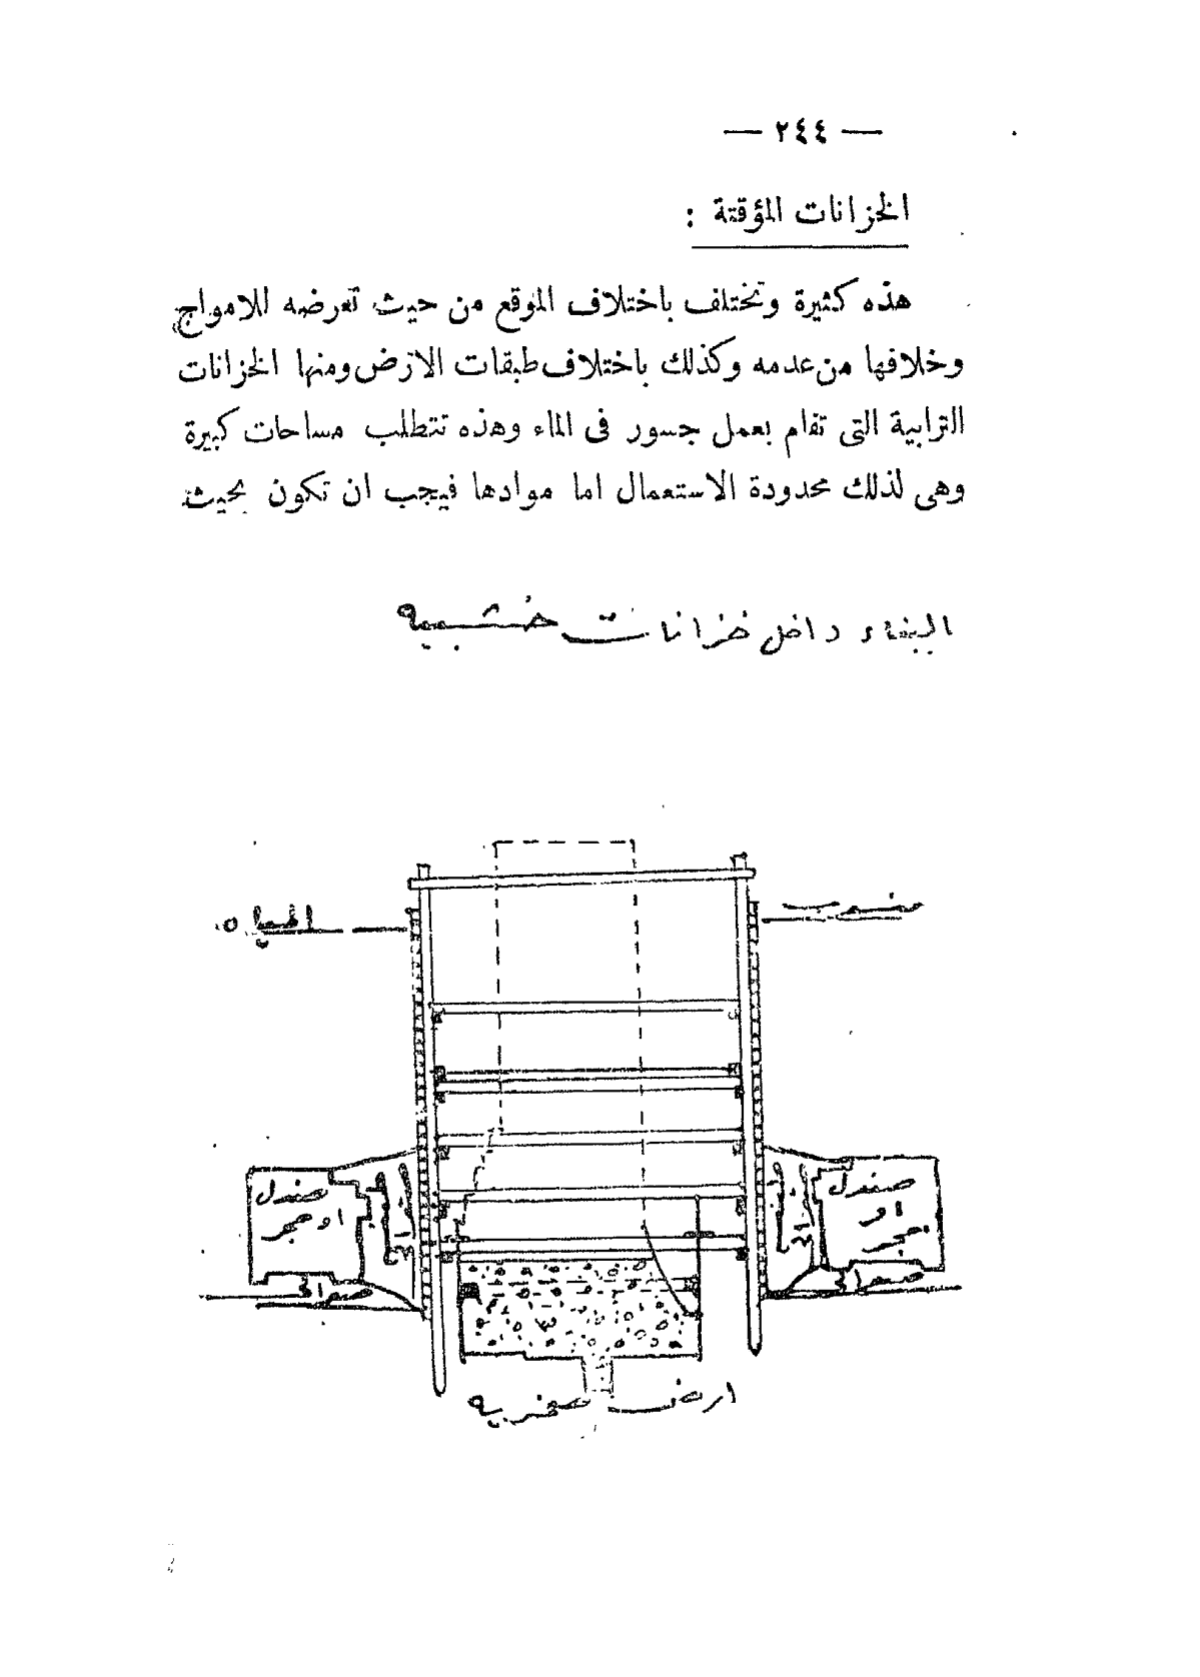 — ٢٤٤ —
الخزانات المؤقتة :
هذه كثيرة وتختلف باختلاف الموقع من حيث تعرضه للامواج
وخلافها من عدمه وكذلك باختلاف طبقات الارض ومنها الخزانات
الترابية التى تقام بعمل جسور فى الماء وهذه تتطلب مساحات كبيرة
وهى لذلك محدودة الاستعمال اما موادها فيجب ان تكون بحيث
البناء داخل خزانات خشبيه
منسوب
المياه
صندل
او
حجر
صندل
او حجر
ارض صخريه